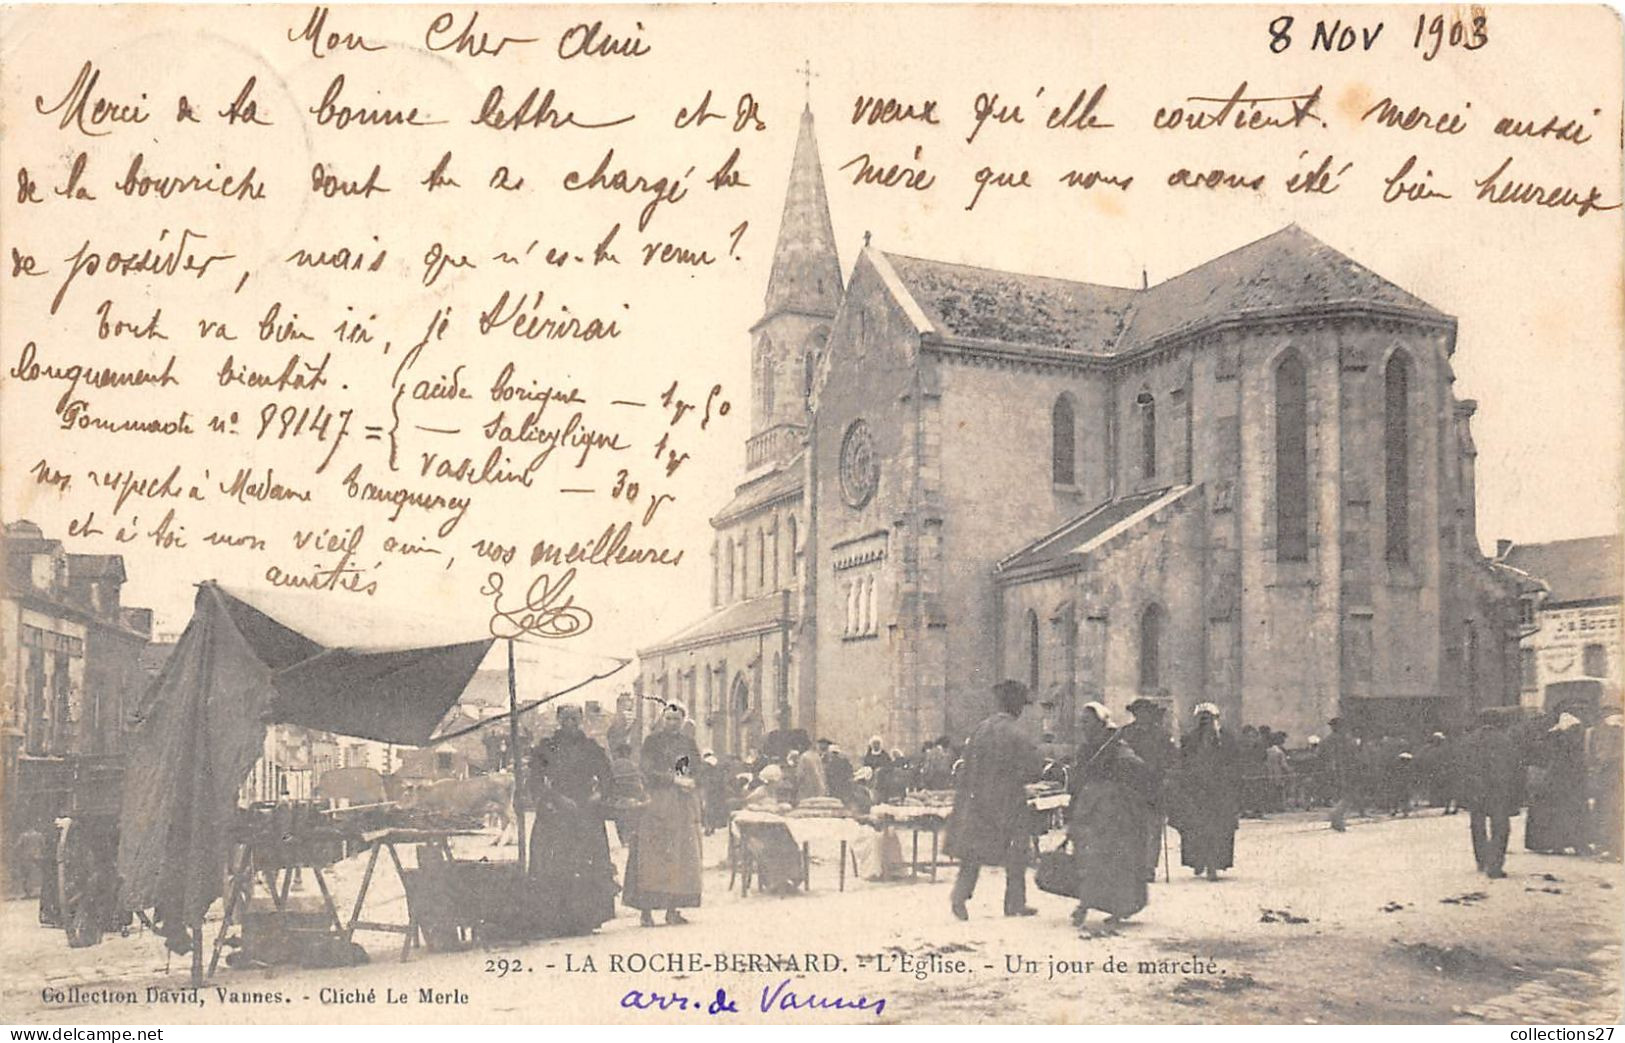 8 NOV 1903
Mon Cher Ami
Merci de ta bonne lettre et des voeux qu'elle contient. Merci aussi
de la bourriche dont tu as chargé ta mère que nous avons été bien heureux
de posséder, mais que n'es-tu venu?
Tout va bien ici, je t'écrirai
longuement bientôt.
acide borique — 1gr 50
Pommade n° 88147 = { — Salicylique 1gr
vaseline — 30gr
nos respects à Madame
et à toi mon vieil ami, nos meilleures
amitiés
J. BOTE
292. - LA ROCHE-BERNARD. - L'Eglise. - Un jour de marché.
Collection David, Vannes. - Cliché Le Merle
arr. de Vannes
collections27